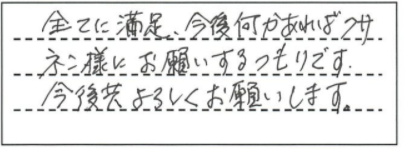 全てに満足、今後何かあればフサ
ネン様にお願いするつもりです.
今後共よろしくお願いします。